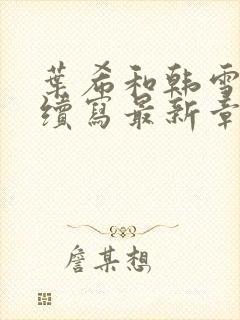 葉希和韓雪
續寫最新章
詹某想